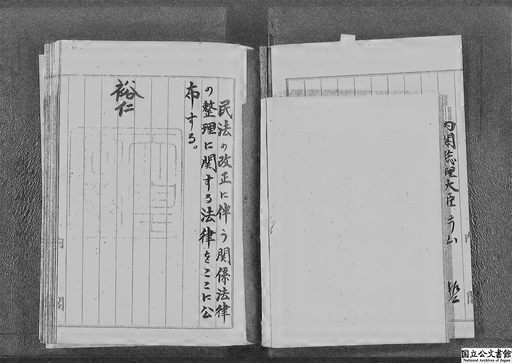 民法の改正に伴う関係法律
の整理に関する法律をここに公
布する。
裕仁
内閣総理大臣
内
閣
内
閣
国立公文書館
National Archives of Japan